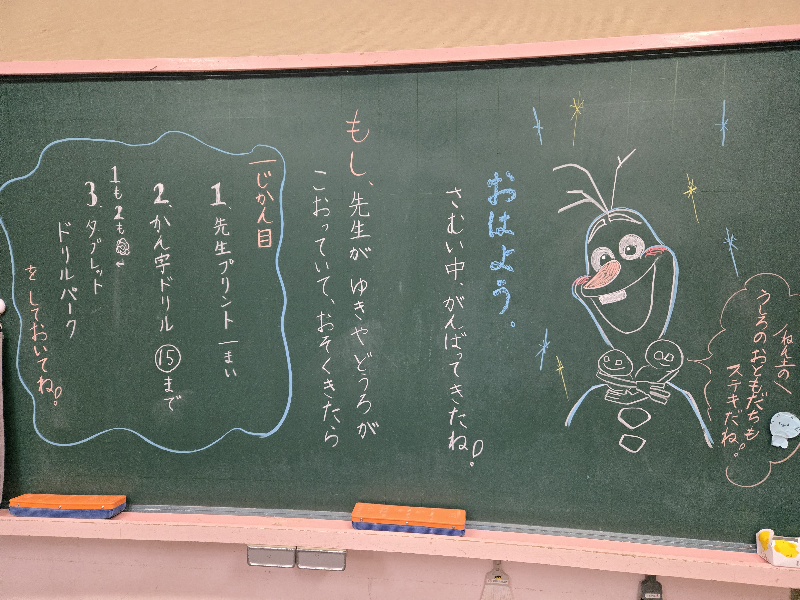 ねん土の
うしろのおともだちも
ステキだね!
おはよう。
さむい中、がんばってきたね!
もし、先生が ゆきやどうろが
こおっていて、おそくきたら
一じかん目
1. 先生プリント 一まい
2. かん字ドリル ⑮まで
1も2も
3. タブレット
ドリルパーク
をしておいてね!